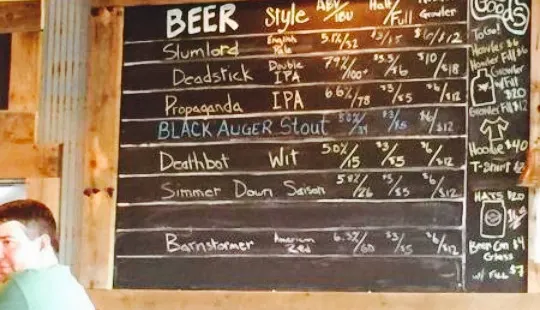 BEER Style ABV/IBU Half/Full Growler
Slumlord English Pale 5.1%/32 $3/$5 $6/$12
Deadstick Double IPA 7.9%/100+ $3.5/$6 $10/$18
Propaganda IPA 6.6%/78 $3/$5 $6/$12
BLACK AUGER Stout $3/$5 $6/$12
Deathbot Wit 5.0%/15 $3/$5 $6/$12
Simmer Down Saison 5.8%/26 $3/$5 $6/$12
Barnstormer American Red 6.3%/60 $3/$5 $6/$12
Goods
To Go!
Howler $6
Howler Fill $6
Growler
w/Fill
$20
Growler Fill $12
Hoodie $40
T-Shirt
HATS $20
Beer Can $4
Glass
w/ Fill $7